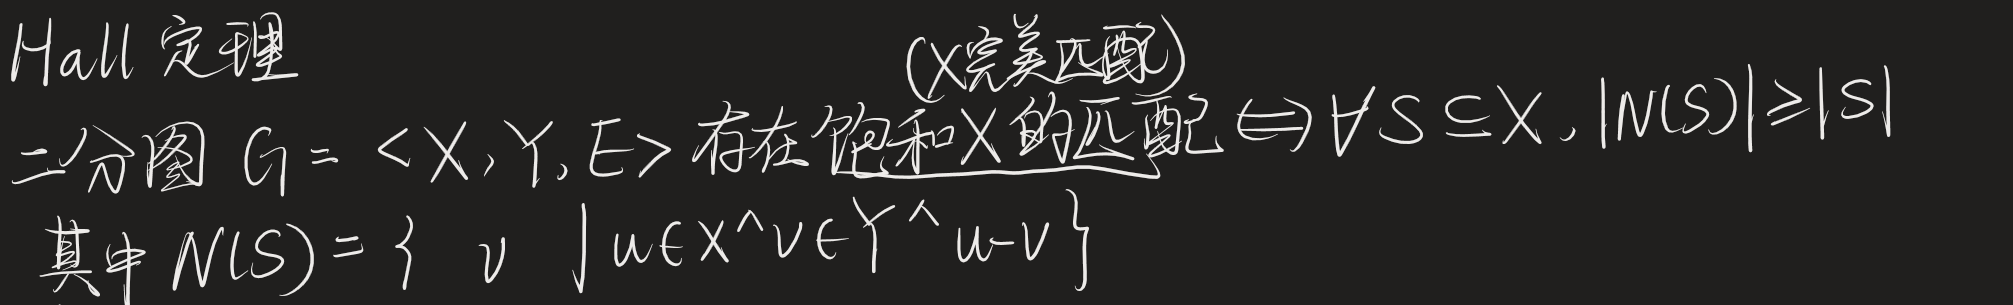 Hall 定理
(X完美匹配)
二分图 G = <X, Y, E> 存在饱和X的匹配 ⇔ ∀S ⊆ X, |N(S)| ≥ |S|
其中 N(S) = { v | u∈X ^ v∈Y ^ u-v }